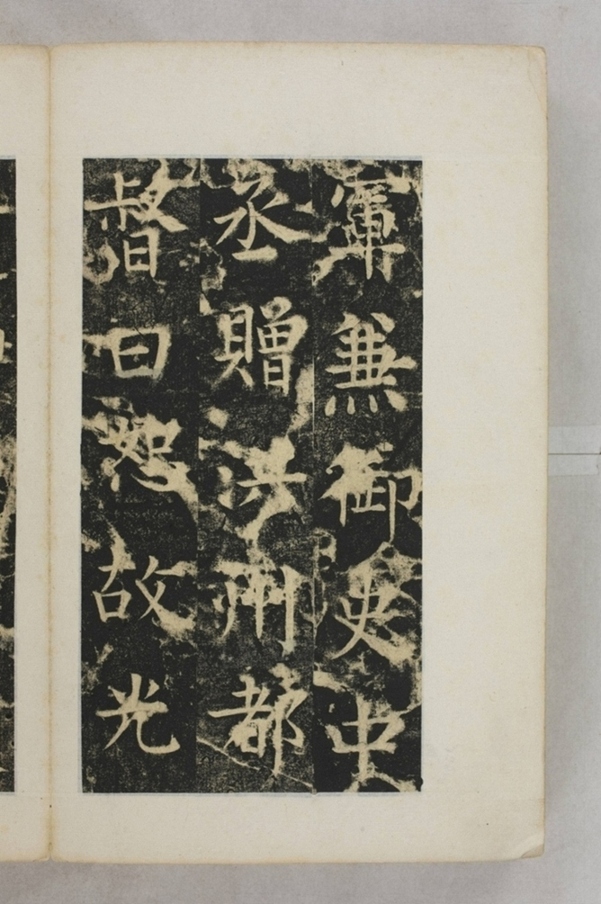 軍兼御史中
丞贈洪州都
督曰恕故光